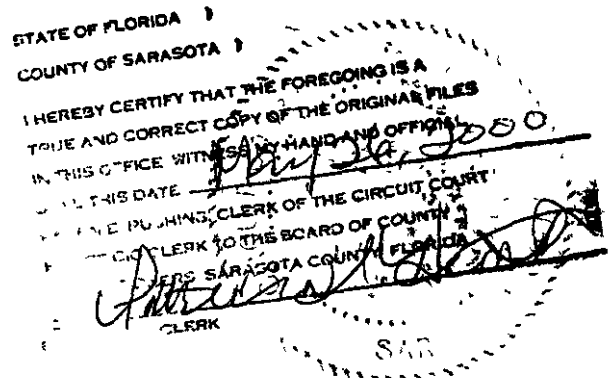 STATE OF FLORIDA )
COUNTY OF SARASOTA )
I HEREBY CERTIFY THAT THE FOREGOING IS A
TRUE AND CORRECT COPY OF THE ORIGINAL FILES
IN THIS OFFICE WITNESS MY HAND AND OFFICIAL
THIS DATE May 26, 2000
RUSHING, CLERK OF THE CIRCUIT COURT
CLERK TO THE BOARD OF COUNTY
SARASOTA COUNTY FLORIDA
CLERK
SAR